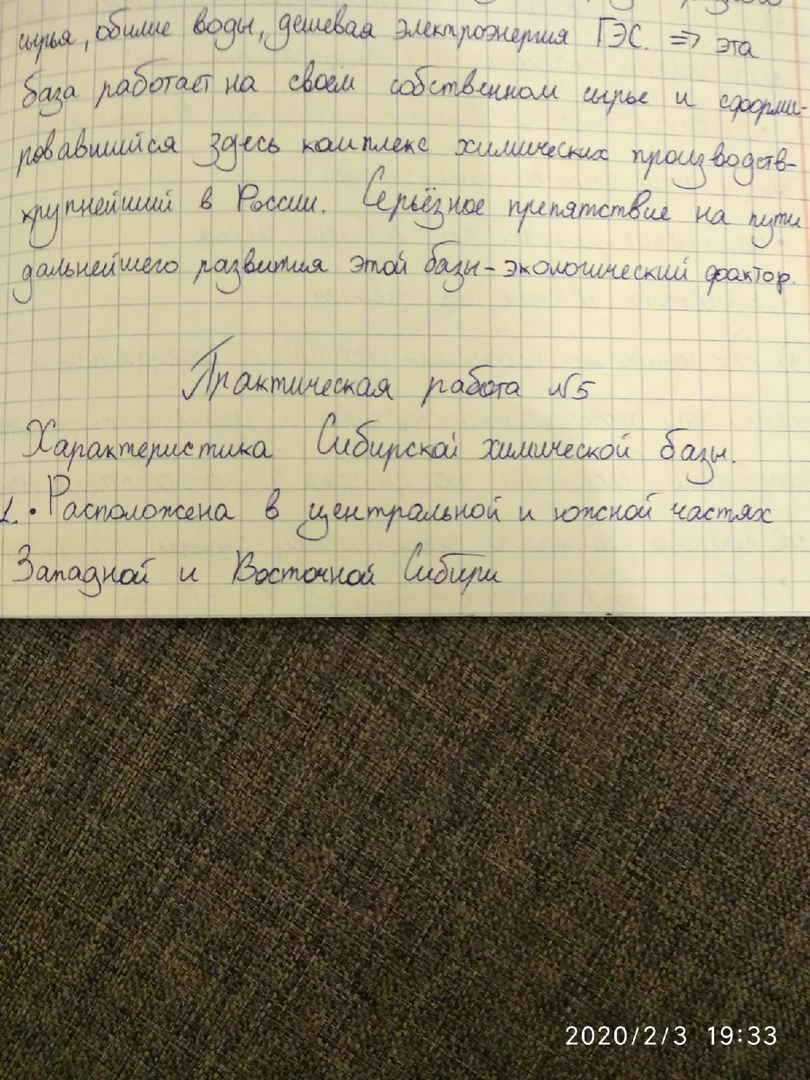 сырья, обилие воды, дешевая электроэнергия ГЭС. => эта
база работает на своём собственном сырье и сформи-
ровавшийся здесь комплекс химических производств-
крупнейший в России. Серьёзное препятствие на пути
дальнейшего развития этой базы-экологический фактор.
Практическая работа №5
Характеристика Сибирской химической базы.
1. • Расположена в центральной и южной частях
Западной и Восточной Сибири
2020/2/3 19:33